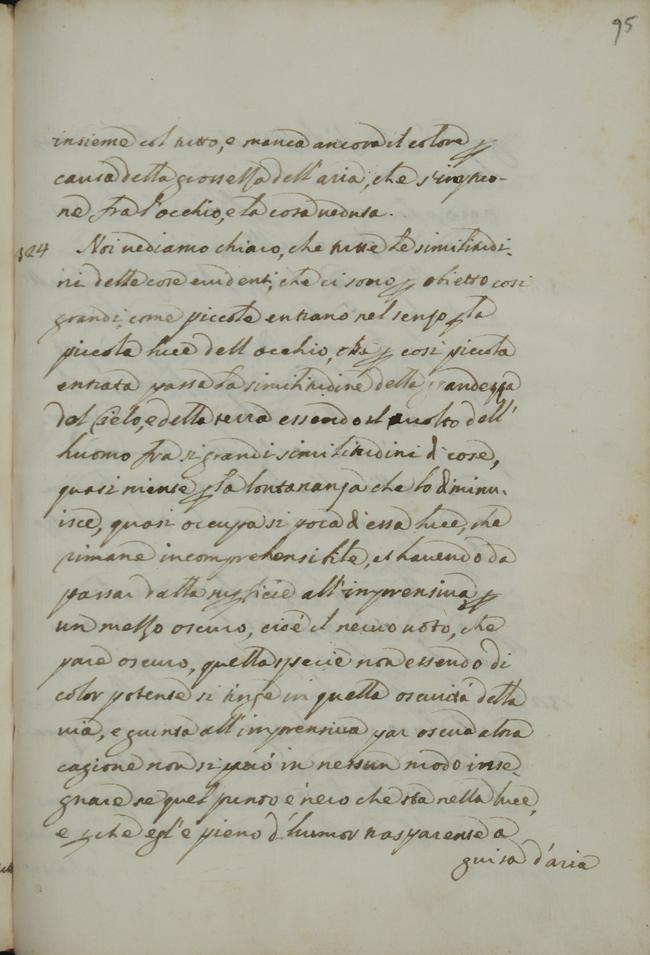 95
insieme col tutto, e manca ancora il colore p
causa della grossezza dell'aria, che s'inpho-
ne fra l'occhio, e la cosa veduta.
324 Noi vediamo chiaro, che tutte le similitudi-
ni delle cose evidenti, che ci sono p obietto così
grandi, come piccole entrano nel senso p la
piccola luce dell occhio, che p così piccola
entrata passa la similitudine della grandezza
del Cielo, e della terra essendo il volto dell'
huomo fra si grandi similitudini di cose,
quasi niente p la lontananza che lo diminu-
isce, quasi occupa si poca di essa luce, che
rimane incomprehensibile, et havendo da
passar dalla supficie all'imprensiva p
un mezzo oscuro, cioè il nervo voto, che
pare oscuro, quella specie non essendo di
color potente si tinge in quella oscurità della
via, e giunta all'imprensiva par oscura altra
cagione non si può in nessun modo inse-
gnare se quel punto è nero che sta nella luce,
e pche egl'è pieno d'humor trasparente a
guisa d'aria